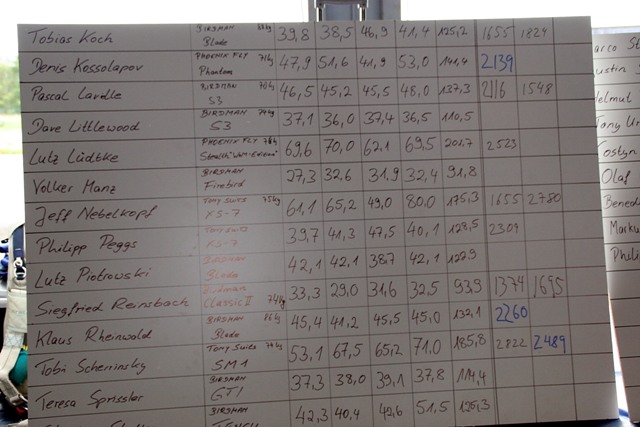 Tobias Koch BIRDMAN Blade 39,8 38,5 46,9 41,4 125,2 1655 1824
Denis Kossolapov PHOENIX FLY 71kg Phantom 47,9 51,6 41,9 53,0 141,4 2139
Pascal BIRDMAN 70kg S3 46,5 45,2 45,5 48,0 137,3 2116 1548
Dave Littlewood BIRDMAN 74kg S3 37,1 36,0 37,4 36,5 110,5
Lutz Lüdtke PHOENIX FLY 69,6 70,0 62,1 69,5 201,7 2523
Volker Manz BIRDMAN Firebird 27,3 32,6 31,9 32,4 91,8
Jeff Nebelkopf TONY SUITS 75kg XS-7 61,1 65,2 49,0 80,0 175,3 1655 2780
Philipp Peggs TONY SUITS XS-7 39,7 41,3 47,5 40,1 128,5 2309
Lutz Piotrowski BIRDMAN Blade 42,1 42,1 38,7 42,1 122,9
Siegfried Reinsbach Birdman Classic II 74kg 33,3 29,0 31,6 32,5 93,9 1374 1695
Klaus Rheinwald BIRDMAN 86kg Blade 45,4 41,2 45,5 45,0 132,1 2260
Tobi Scherninsky TONY SUITS 74kg SM1 53,1 67,5 65,2 71,0 185,8 2822 2489
Teresa BIRDMAN GTI 37,3 38,0 39,1 37,8 114,4
BIRDMAN 42,3 40,4 42,6 51,5 125,3
arco
ustin
Helmut
Tony
Olaf
Bened
Marku
Phili